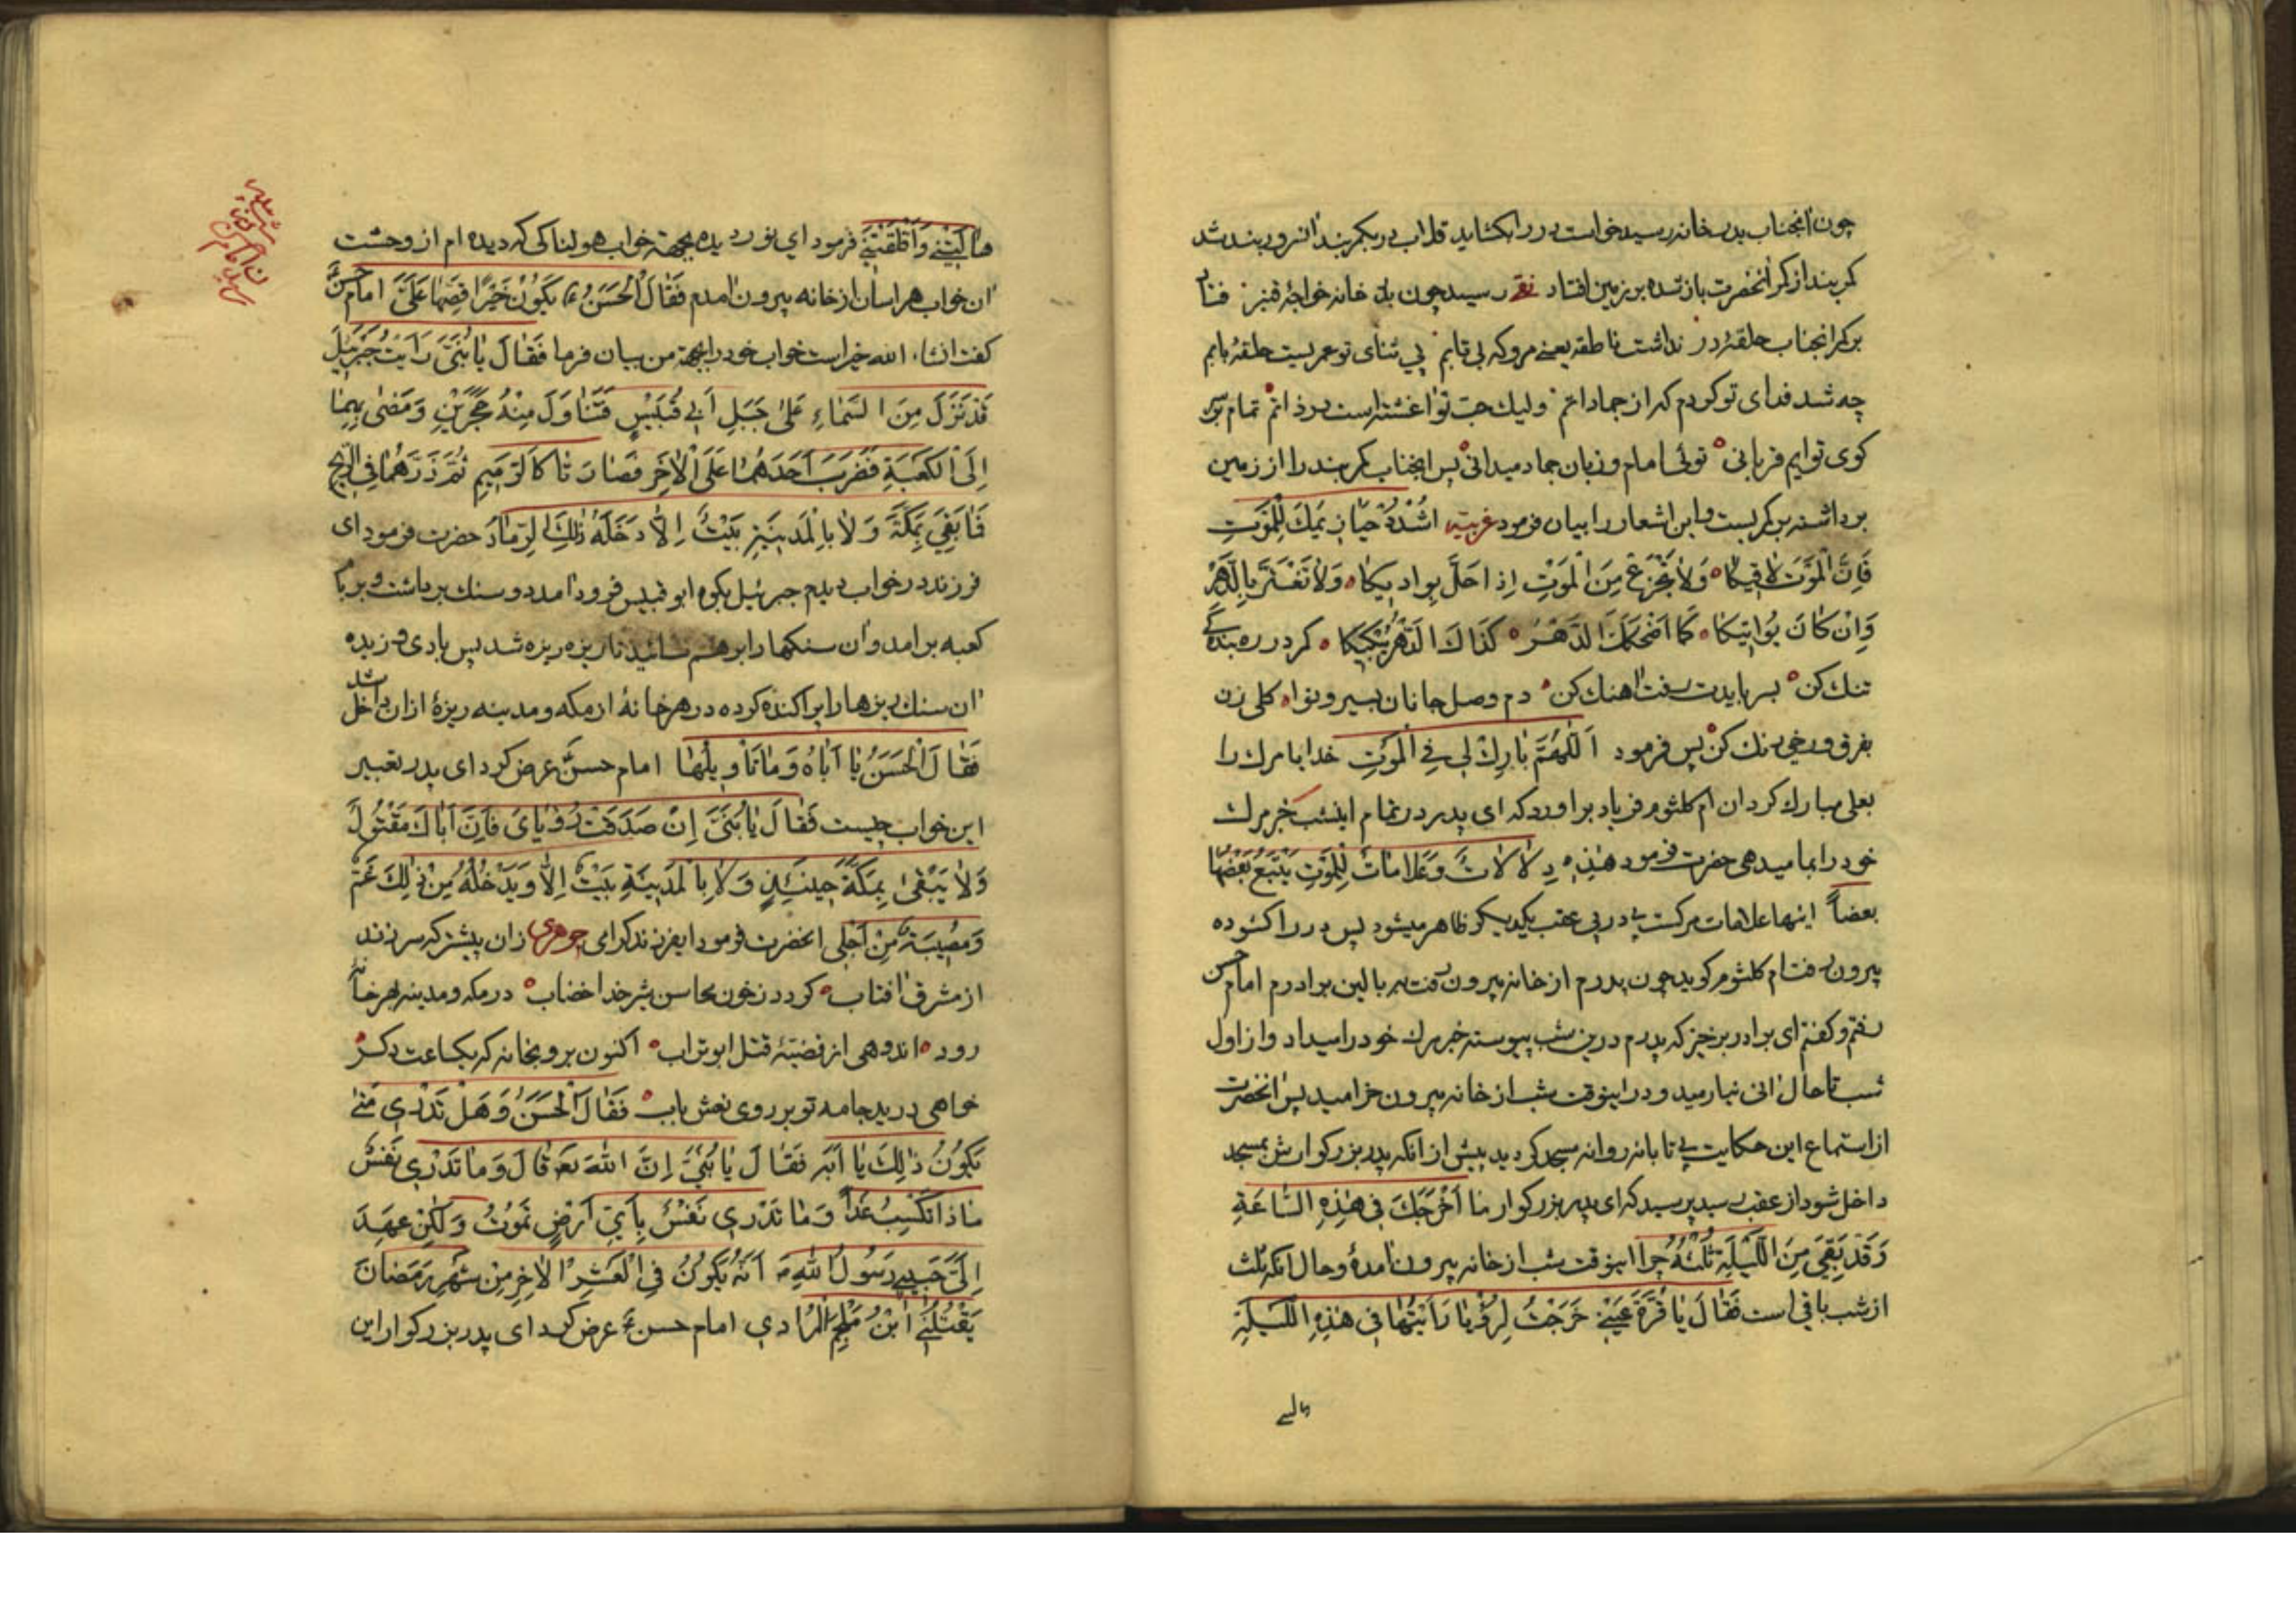 چون آنجناب بدر خانه رسید خواست در را بکشاید قلاب در بکمربند آنسرور بند شد
کمربند از کمر آنحضرت باز شده بر زمین افتاد رسید چون بدر خانه خواجهٔ قنبر فتاد
بر کمر آنجناب حلقهٔ در نداشت ناطقه یعنی مرو که بی تابم پی ثنای تو عمریست حلقهٔ بابم
چه شد فدای تو کردم که از جماداتم ولیک حب تو آغشته است در ذاتم تمام بر سر
کوی توایم قربانی توئی امام و زبان جماد میدانی پس آنجناب کمربند را از زمین
برداشته بر کمر بست و این اشعار را بیان فرمود عربیّه اُشْدُدْ حَیَازِیمَكَ لِلْمَوْتِ
فَاِنَّ الْمَوْتَ لاٰقِیکَا وَلاٰ تَجْزَعْ مِنَ الْمَوْتِ اِذٰا حَلَّ بِوٰادیٖکَا وَلاٰ تَغْتَرَّ بِالدَّهْرِ
وَاِنْ کٰانَ یُوٰاتیٖکَا کَمٰا اَضْحَکَكَ الدَّهْرُ کَذٰاكَ الدَّهْرُ یُبْکیٖکَا کمر در ره بندگی
تنك کن بسر بایدت رفت آهنك کن دم وصل جانان بسیر و نوا کلی زن
بفرق و رخی رنك کن پس فرمود اَللّٰهُمَّ بٰارِكْ لی فِی الْمَوْتِ خدایا مرك را
بعلی مبارك کردان ام کلثوم فریاد برآورد که ای پدر در تمام اینشب خبر مرك
خود را بما میدهی حضرت فرمود هٰذِهِ دِلاٰلاٰتٌ وَعَلاٰمٰاتٌ لِلْمَوْتِ یَتْبَعُ بَعْضُهٰا
بعضاً اینها علامات مرکست پی در پی عقب یکدیکر ظاهر میشود پس در را کشوده
بیرون رفت ام کلثوم کوید چون پدرم از خانه بیرون رفت بر بالین برادرم امام حسن
رفتم و کفتم ای برادر برخیز که پدرم درین شب پیوسته خبر مرك خود را میداد و از اول
شب تا حال آنی نیارمید و در اینوقت شب از خانه بیرون خرامید پس آنحضرت
از استماع این حکایت بی تابانه روانه مسجد کردید پیش از آنکه پدر بزرکوارش بمسجد
داخل شود از عقب رسید پرسید که ای پدر بزرکوار مٰا اَخْرَجَكَ فی هٰذِهِ السّٰاعَةِ
وَقَدْ بَقِیَ مِنَ اللَّیْلَةِ ثُلُثُهُ چرا اینوقت شب از خانه بیرون آمدهٔ و حال آنکه ثلث
از شب باقی است فَقٰالَ یٰا قُرَّةَ عَیْنیٖ خَرَجْتُ لِرُؤْیٰا رَاَیْتُهٰا فی هٰذِهِ اللَّیْلَةِ
هالتنی
هٰالَتْنیٖ وَاَقْلَقَتْنیٖ فرمود ای نور دیده بجهة خواب هولناکی که دیده ام از وحشت
آن خواب هراسان از خانه بیرون آمدم فَقٰالَ الْحَسَنُ ع یَکُوْنُ خَیْرًا قُصَّهٰا عَلَیَّ امام حسن
کفت انشاء الله خیر است خواب خود را بجهة من بیان فرما فَقٰالَ یٰا بُنَیَّ رَاَیْتُ جَبْرَئیٖلَ
قَدْ نَزَلَ مِنَ السَّمٰاءِ عَلیٰ جَبَلِ اَبی قُبَیْسٍ فَتَنٰاوَلَ مِنْهُ حَجَرَیْنِ وَمَضیٰ بِهِمٰا
اِلَی الْکَعْبَةِ فَضَرَبَ اَحَدَهُمٰا عَلَی الْاٰخَرِ فَصٰارَتٰا کَالرَّمیٖمِ ثُمَّ ذَرَّهُمٰا فِی الرّیحِ
فَمٰا بَقِیَ بِمَکَّةَ وَلاٰ بِالْمَدیٖنَةِ بَیْتٌ اِلاّٰ دَخَلَهُ ذٰلِكَ الرَّمٰادُ حضرت فرمود ای
فرزند در خواب دیدم جبرئیل بکوه ابو قبیس فرود آمد دو سنك برداشت و بر بام
کعبه برآمد و آن سنکها را بر هم سائید تا ریزه ریزه شد پس بادی وزیده
آن سنك ریزها را پراکنده کرده در هر خانهٔ از مکه و مدینه ریزهٔ از آن داخل شد
فَقٰالَ الْحَسَنُ یٰا اَبٰاهُ وَمٰا تَأْویٖلُهٰا امام حسنؑ عرض کرد ای پدر تعبیر
این خواب چیست فَقٰالَ یٰا بُنَیَّ اِنْ صَدَقَتْ رُؤْیٰایَ فَاِنَّ اَبٰاكَ مَقْتُوْلٌ
وَلاٰ یَبْقیٰ بِمَکَّةَ حیٖنَئِذٍ وَلاٰ بِالْمَدیٖنَةِ بَیْتٌ اِلاّٰ وَیَدْخُلُهُ مِنْ ذٰلِكَ غَمٌّ
وَمُصیٖبَةٌ مِنْ اَجْلی آنحضرت فرمود ایفرزند کرامی جوهری زان پیشتر که سر زند
از مشرق آفتاب کردد ز خون محاسن شیر خدا خضاب در مکه و مدینه بهر خانه
رود اندوهی از قضیّهٔ قتل ابوتراب اکنون برو بخانه که یکساعت دکر
خواهی درید جامه تو بر روی نعش باب فَقٰالَ الْحَسَنُ وَهَلْ تَدْریٖ مَتیٰ
یَکُوْنُ ذٰلِكَ یٰا اَبَه فَقٰالَ یٰا بُنَیَّ اِنَّ اللّٰهَ یَقُوْلُ وَمٰا تَدْریٖ نَفْسٌ
مٰاذٰا تَکْسِبُ غَداً وَمٰا تَدْریٖ نَفْسٌ بِاَیِّ اَرْضٍ تَمُوْتُ وَلٰکِنْ عَهِدَ
اِلَیَّ حَبیٖبیٖ رَسُوْلُ اللّٰهِ ص اَنَّهُ یَکُوْنُ فِی الْعَشْرِ الْاٰخِرِ مِنْ شَهْرِ رَمَضٰانَ
یَقْتُلُنیٖ اِبْنُ مُلْجَمِ الْمُرٰادیٖ امام حسنؑ عرض کرد ای پدر بزرکوار این